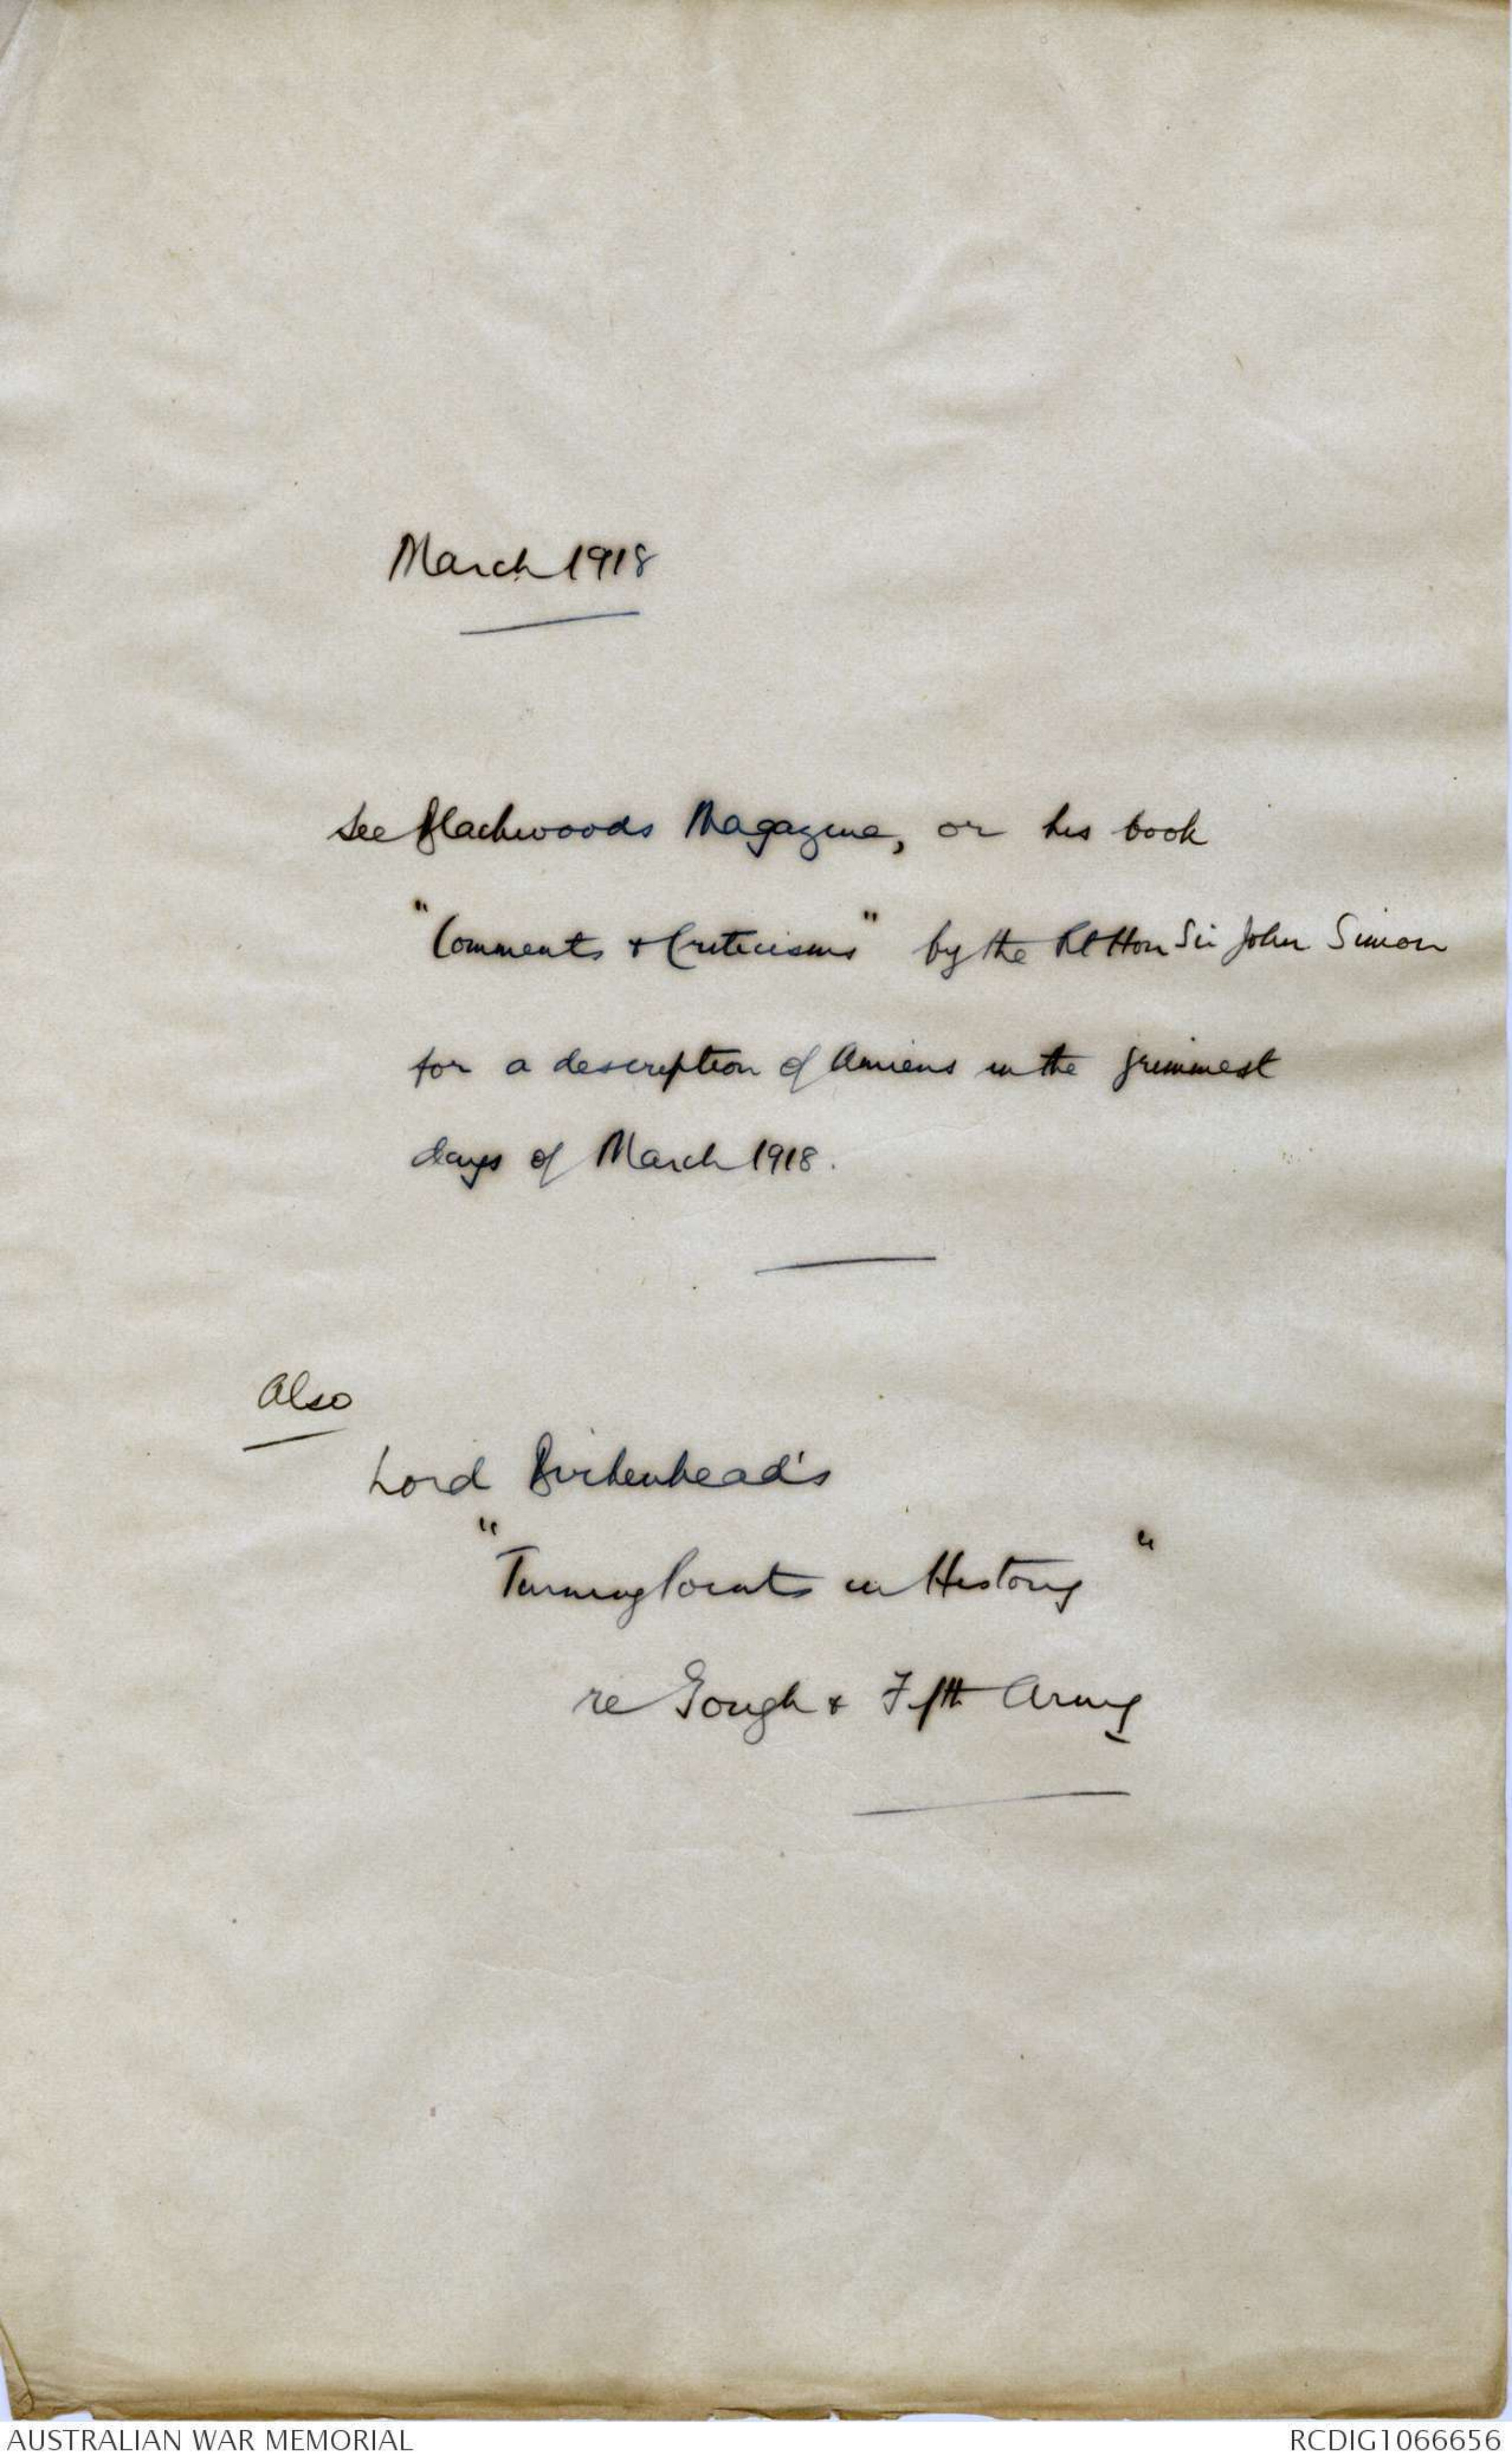 March 1918
See Blackwoods Magazine, or his book
"Comments + Criticisms" by the Rt Hon Sir John Simon
for a description of Amiens in the grimmest
days of March 1918.
Also
Lord Birkenhead's
"Turning Points in History"
re Gough + Fifth Army
AUSTRALIAN WAR MEMORIAL
RCDIG1066656